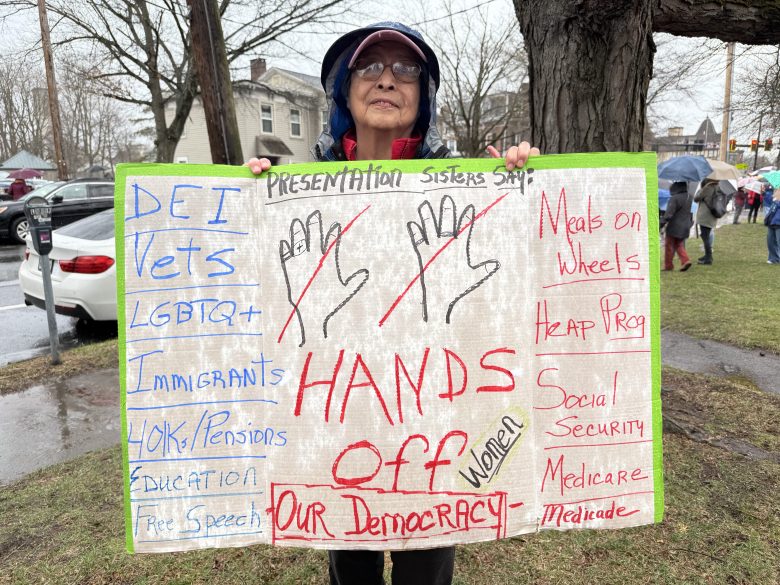 PRESENTATION SISTERS SAY:
DEI
Vets
LGBTQ+
IMMIGRANTS
401Ks/PENSIONS
EDUCATION
Free Speech
HANDS
Off
Women
OUR DEMOCRACY
Meals on
Wheels
HEAP PROG
Social
Security
Medicare
Medicade